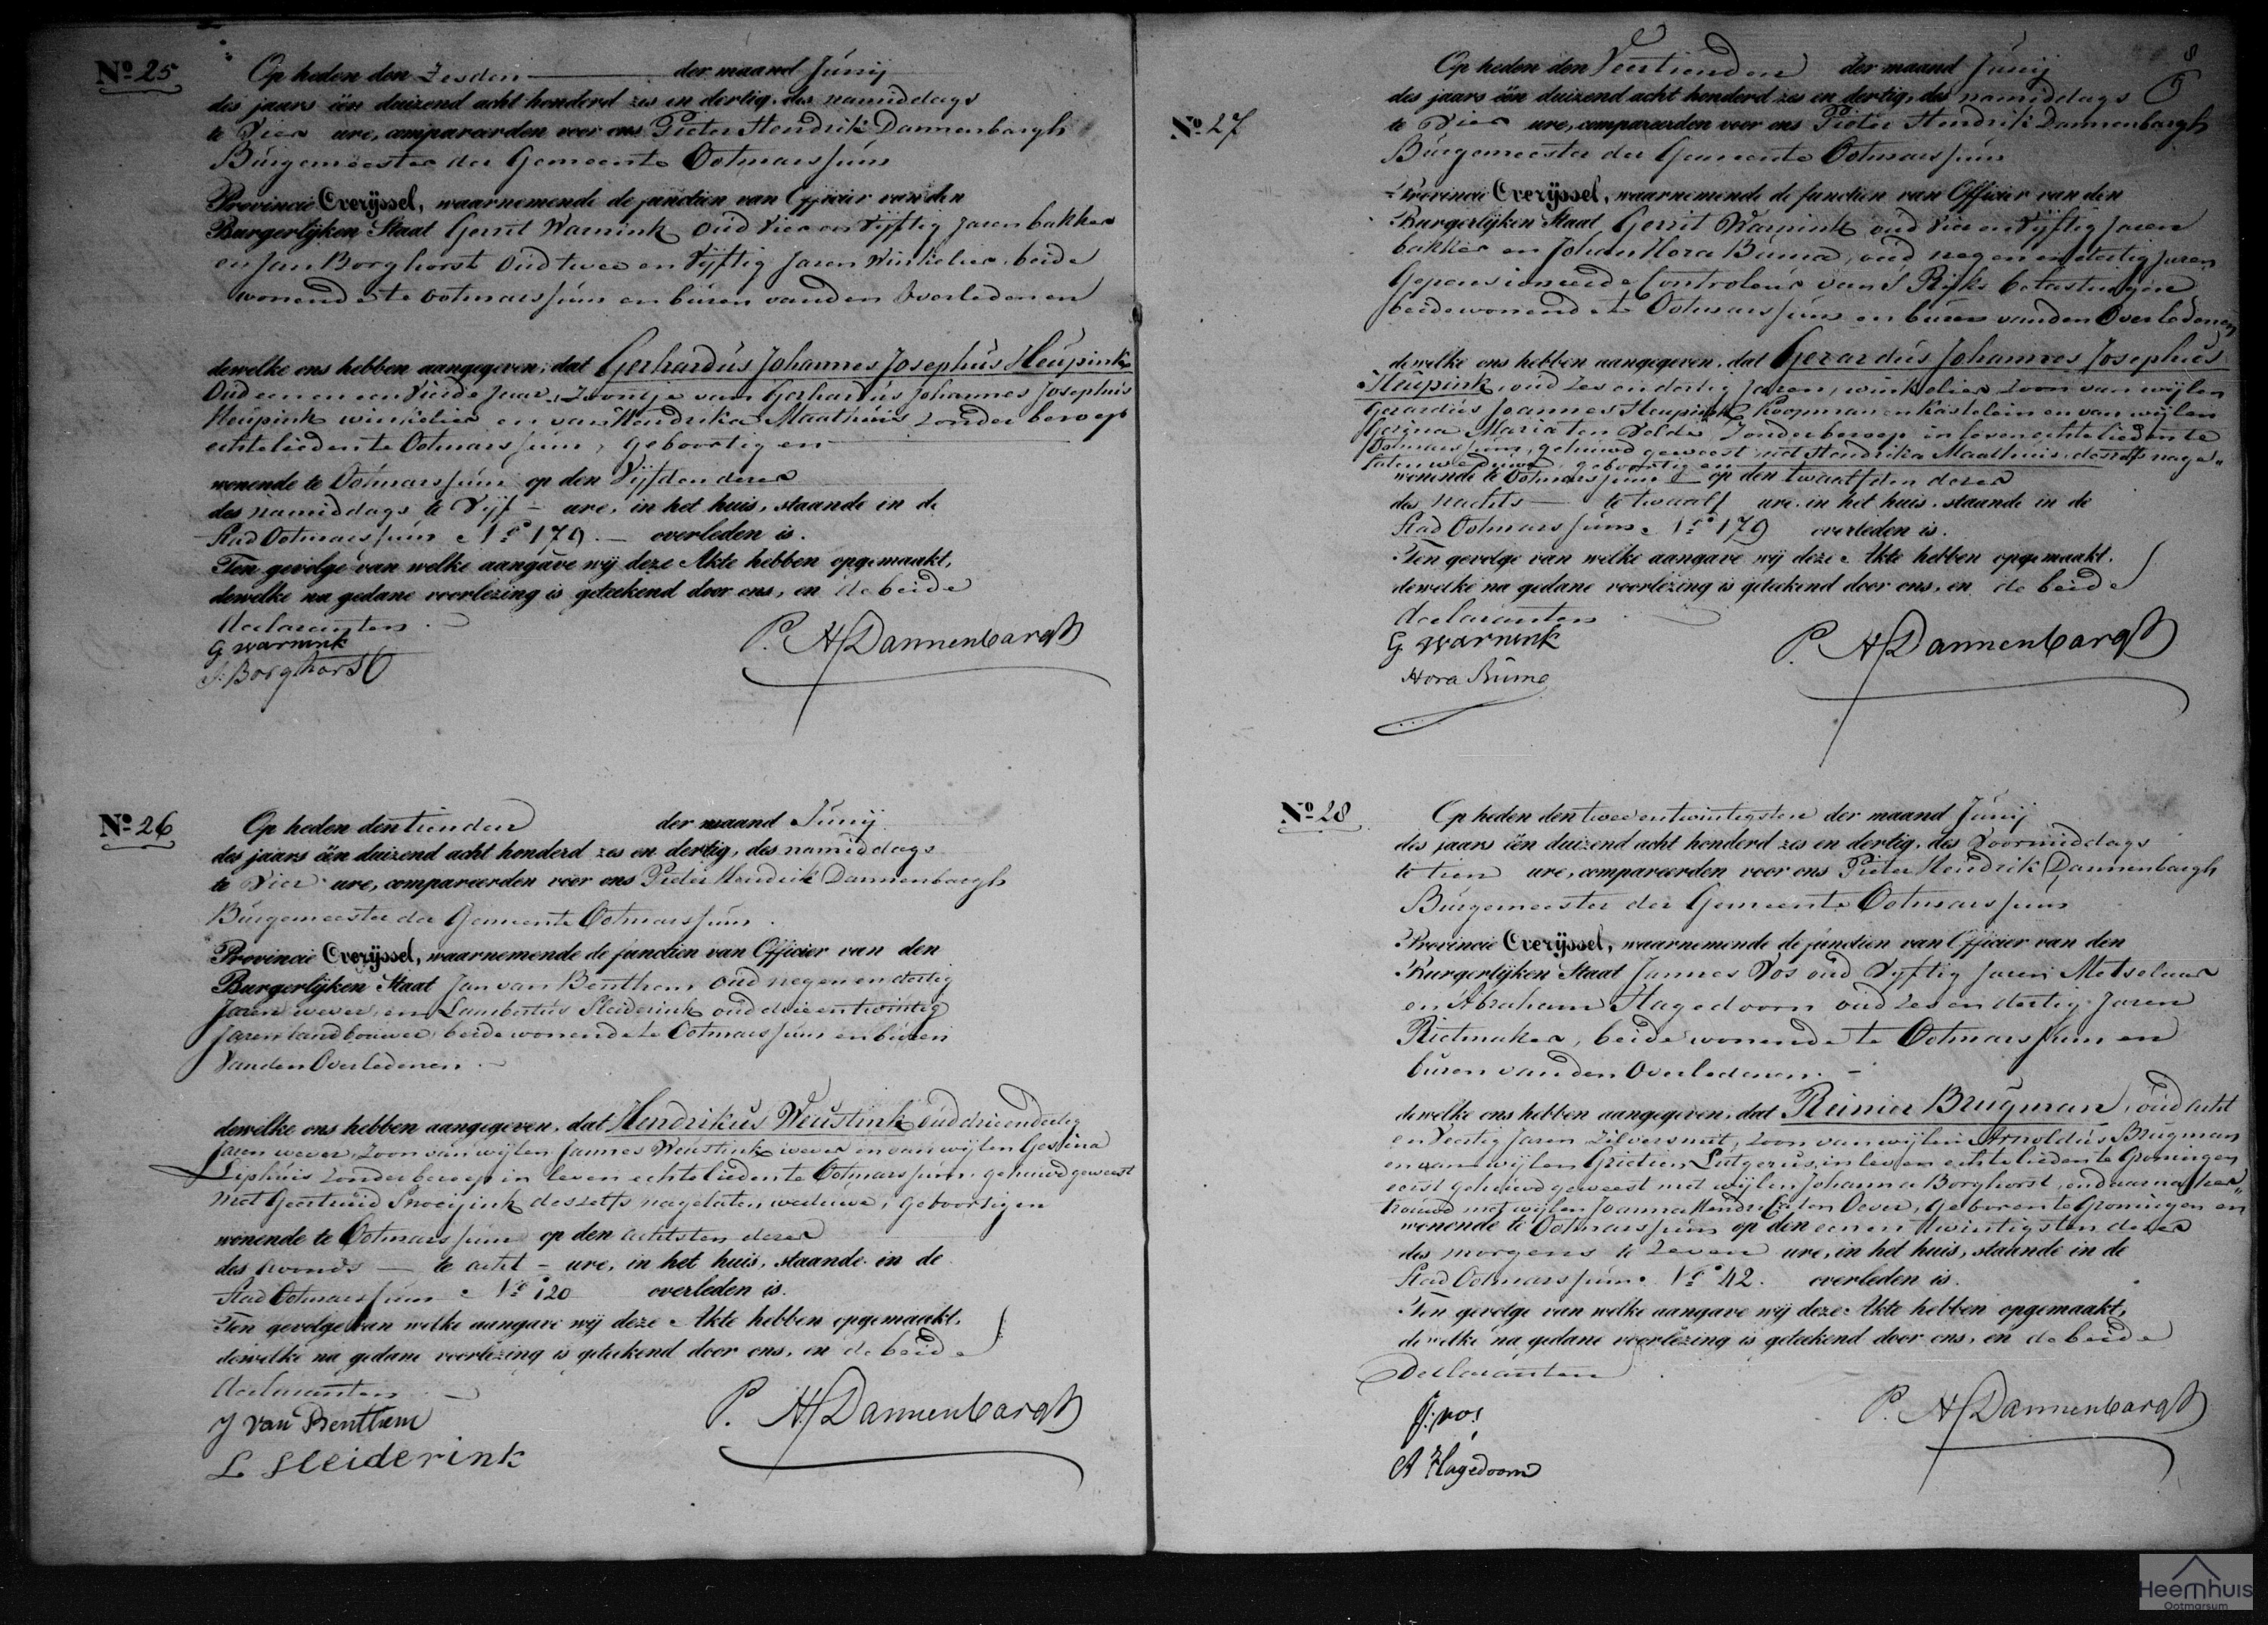 No. 25
Op heden den Zesden der maand Junij
des jaars één duizend acht honderd zes en dertig, des namiddags
te Vier ure, compareerden voor ons Pieter Hendrik Dannenbargh
Burgemeester der Gemeente Ootmarssum
Provincie Overijssel, waarnemende de functien van Officier van den
Burgerlijken Staat Gerrit Warnink oud Vier en Vijftig Jaren bakker
en Jan Borghorst Oud twee en Vijftig Jaren Winkelier beide
wonende te Ootmarssum en buren van den Overledenen
dewelke ons hebben aangegeven, dat Gerhardus Johannes Josephus Heupink
Oud een en een Vierde Jaar, Zoontje van Gerhardus Johannes Josephus
Heupink winkelier en van Hendrika Maathuis zonder beroep
echtelieden te Ootmarssum, geboortig en
wonende te Ootmarssum op den Vijfden dezer
des namiddags te Vijf ure, in het huis, staande in de
Stad Ootmarssum No. 179. overleden is.
Ten gevolge van welke aangave wij deze Akte hebben opgemaakt,
dewelke na gedane voorlezing is geteekend door ons, en de beide
declaranten.
G Warnink
J: Borghorst
P. H Dannenbargh
No. 26
Op heden den tienden der maand Junij
des jaars één duizend acht honderd zes en dertig, des namiddags
te Vier ure, compareerden voor ons Pieter Hendrik Dannenbargh
Burgemeester der Gemeente Ootmarssum.
Provincie Overijssel, waarnemende de functien van Officier van den
Burgerlijken Staat Jan van Benthem oud negen en dertig
Jaren wever, en Lambertus Sleiderink oud drie en twintig
Jaren landbouwer, beide wonende te Ootmarssum en buren
van den Overledenen.
dewelke ons hebben aangegeven, dat Hendrikus Weustink oud drie en dertig
Jaren wever, Zoon van wijlen Jannes Weustink wever en van wijlen Gesina
Liphuis zonder beroep in leven echtelieden te Ootmarssum, gehuwd geweest
met Geertruid Snoeijink deszelfs nagelaten weduwe, geboortig en
wonende te Ootmarssum op den achtsten dezer
des avonds te acht ure, in het huis, staande in de
Stad Ootmarssum No. 120 overleden is.
Ten gevolge van welke aangave wij deze Akte hebben opgemaakt,
dewelke na gedane voorlezing is geteekend door ons, en de beide
declaranten.
J van Benthem
L Sleiderink
P. H Dannenbargh
8
No. 27
Op heden den Veertienden der maand Junij
des jaars één duizend acht honderd zes en dertig, des namiddags
te Vier ure, compareerden voor ons Pieter Hendrik Dannenbargh
Burgemeester der Gemeente Ootmarssum
Provincie Overijssel, waarnemende de functien van Officier van den
Burgerlijken Staat Gerrit Warnink oud Vier en Vijftig Jaren
bakker en Johan Hora Buma, oud negen en dertig Jaren
Gepensioneerde Controleur van 's Rijks belastingen
beide wonende te Ootmarssum en buren van den Overledenen
dewelke ons hebben aangegeven, dat Gerardus Johannes Josephus
Heupink, oud zes en dertig Jaren, winkelier zoon van wijlen
Gerardus Joannes Heupink Koopman en Kastelein en van wijlen
Maria ten Velde zonder beroep in leven echtelieden te
Ootmarssum, gehuwd geweest met Hendrika Maathuis deszelfs nage„
laten weduwe, geboortig en
wonende te Ootmarssum op den twaalfden dezer
des nachts te twaalf ure, in het huis, staande in de
Stad Ootmarssum No. 179 overleden is.
Ten gevolge van welke aangave wij deze Akte hebben opgemaakt,
dewelke na gedane voorlezing is geteekend door ons, en de beide
declaranten.
G Warnink
Hora Buma
P. H Dannenbargh
No. 28
Op heden den twee en twintigsten der maand Junij
des jaars één duizend acht honderd zes en dertig, des Voormiddags
te tien ure, compareerden voor ons Pieter Hendrik Dannenbargh
Burgemeester der Gemeente Ootmarssum
Provincie Overijssel, waarnemende de functien van Officier van den
Burgerlijken Staat Jannes Vos oud Vijftig Jaren Metselaar
en Abraham Hagedoorn oud zes en dertig Jaren
Rietmaker, beide wonende te Ootmarssum en
buren van den Overledenen.
dewelke ons hebben aangegeven, dat Reinier Brugman, oud acht
en Veertig Jaren Zilversmit, zoon van wijlen Arnoldus Brugman
en van wijlen Grietien Lutgerus, in leven echtelieden te Groningen
eerst gehuwd geweest met wijlen Johanna Borghorst, en daarna her„
trouwd met wijlen Joanna Hendrika ten Oever, geboren te Groningen en
wonende te Ootmarssum op den een en twintigsten dezer
des morgens te Zeven ure, in het huis, staande in de
Stad Ootmarssum No. 42. overleden is.
Ten gevolge van welke aangave wij deze Akte hebben opgemaakt,
dewelke na gedane voorlezing is geteekend door ons, en de beide
Declaranten
J: Vos
A Hagedoorn
P. H Dannenbargh
Heemhuis
Ootmarsum